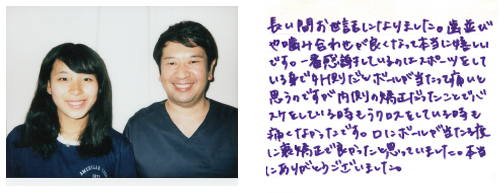 長い間お世話になりました。歯並び
や噛み合わせが良くなって本当に嬉しい
です。一番感謝しているのはスポーツをして
いる身で外側だとボールが当たって痛いと
思うのですが内側の矯正だったことでバ
スケをしている時もラクロスをしている時も
痛くなかったです。口にボールが当たる度
に裏矯正で良かったと思っていました。本当
にありがとうございました。
AMERICAN